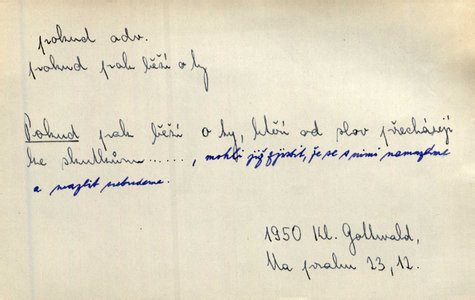 pokud adv.
pokud pak běží o ty
Pokud pak běží o ty, kteří od slov přecházejí
ke skutkům......, mohli již zjistit, že se s nimi
a mazlit nebudeme.
1950 Kl. Gottwald,
Na prahu 23, 12.